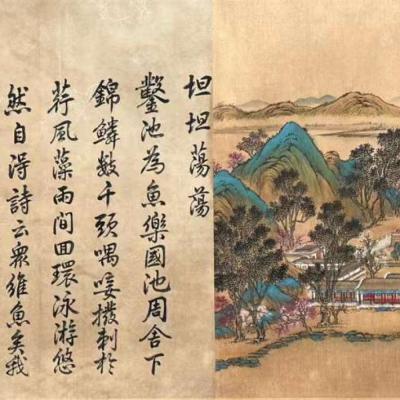 坦坦蕩蕩
鑿池為魚樂國池周舍下
錦鱗數千頭喁唼撥刺於
荇風藻雨間回環泳游悠
然自得詩云衆維魚矣我